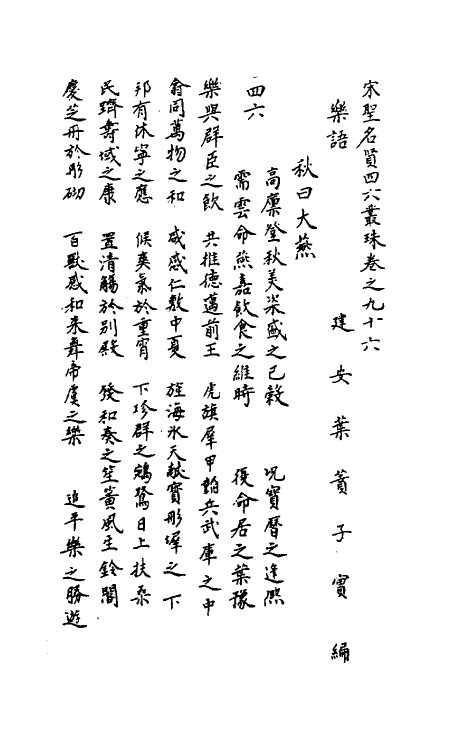 宋聖名賢四六叢珠卷之九十六
建安葉蕡子實編
樂語
秋日大燕
高廩登秋美粢盛之已穀 況寶曆之逢熙
需雲命燕嘉飲食之維時 復命居之葉豫
四六
樂與群臣之飲 共推德邁前王 虎旗犀甲韜兵武庫之中
翕同萬物之和 咸感仁敷中夏 旌海氷天献寳彤墀之下
邦有休寧之應 候爽氣於重霄 下珍群之鵷鷺日上扶桑
民躋壽域之康 置清觴於別殿 發和奏之笙簧風生鈴閣
慶芝丹於彤砌 百獸感和来舞帝虞之樂 追平樂之勝遊